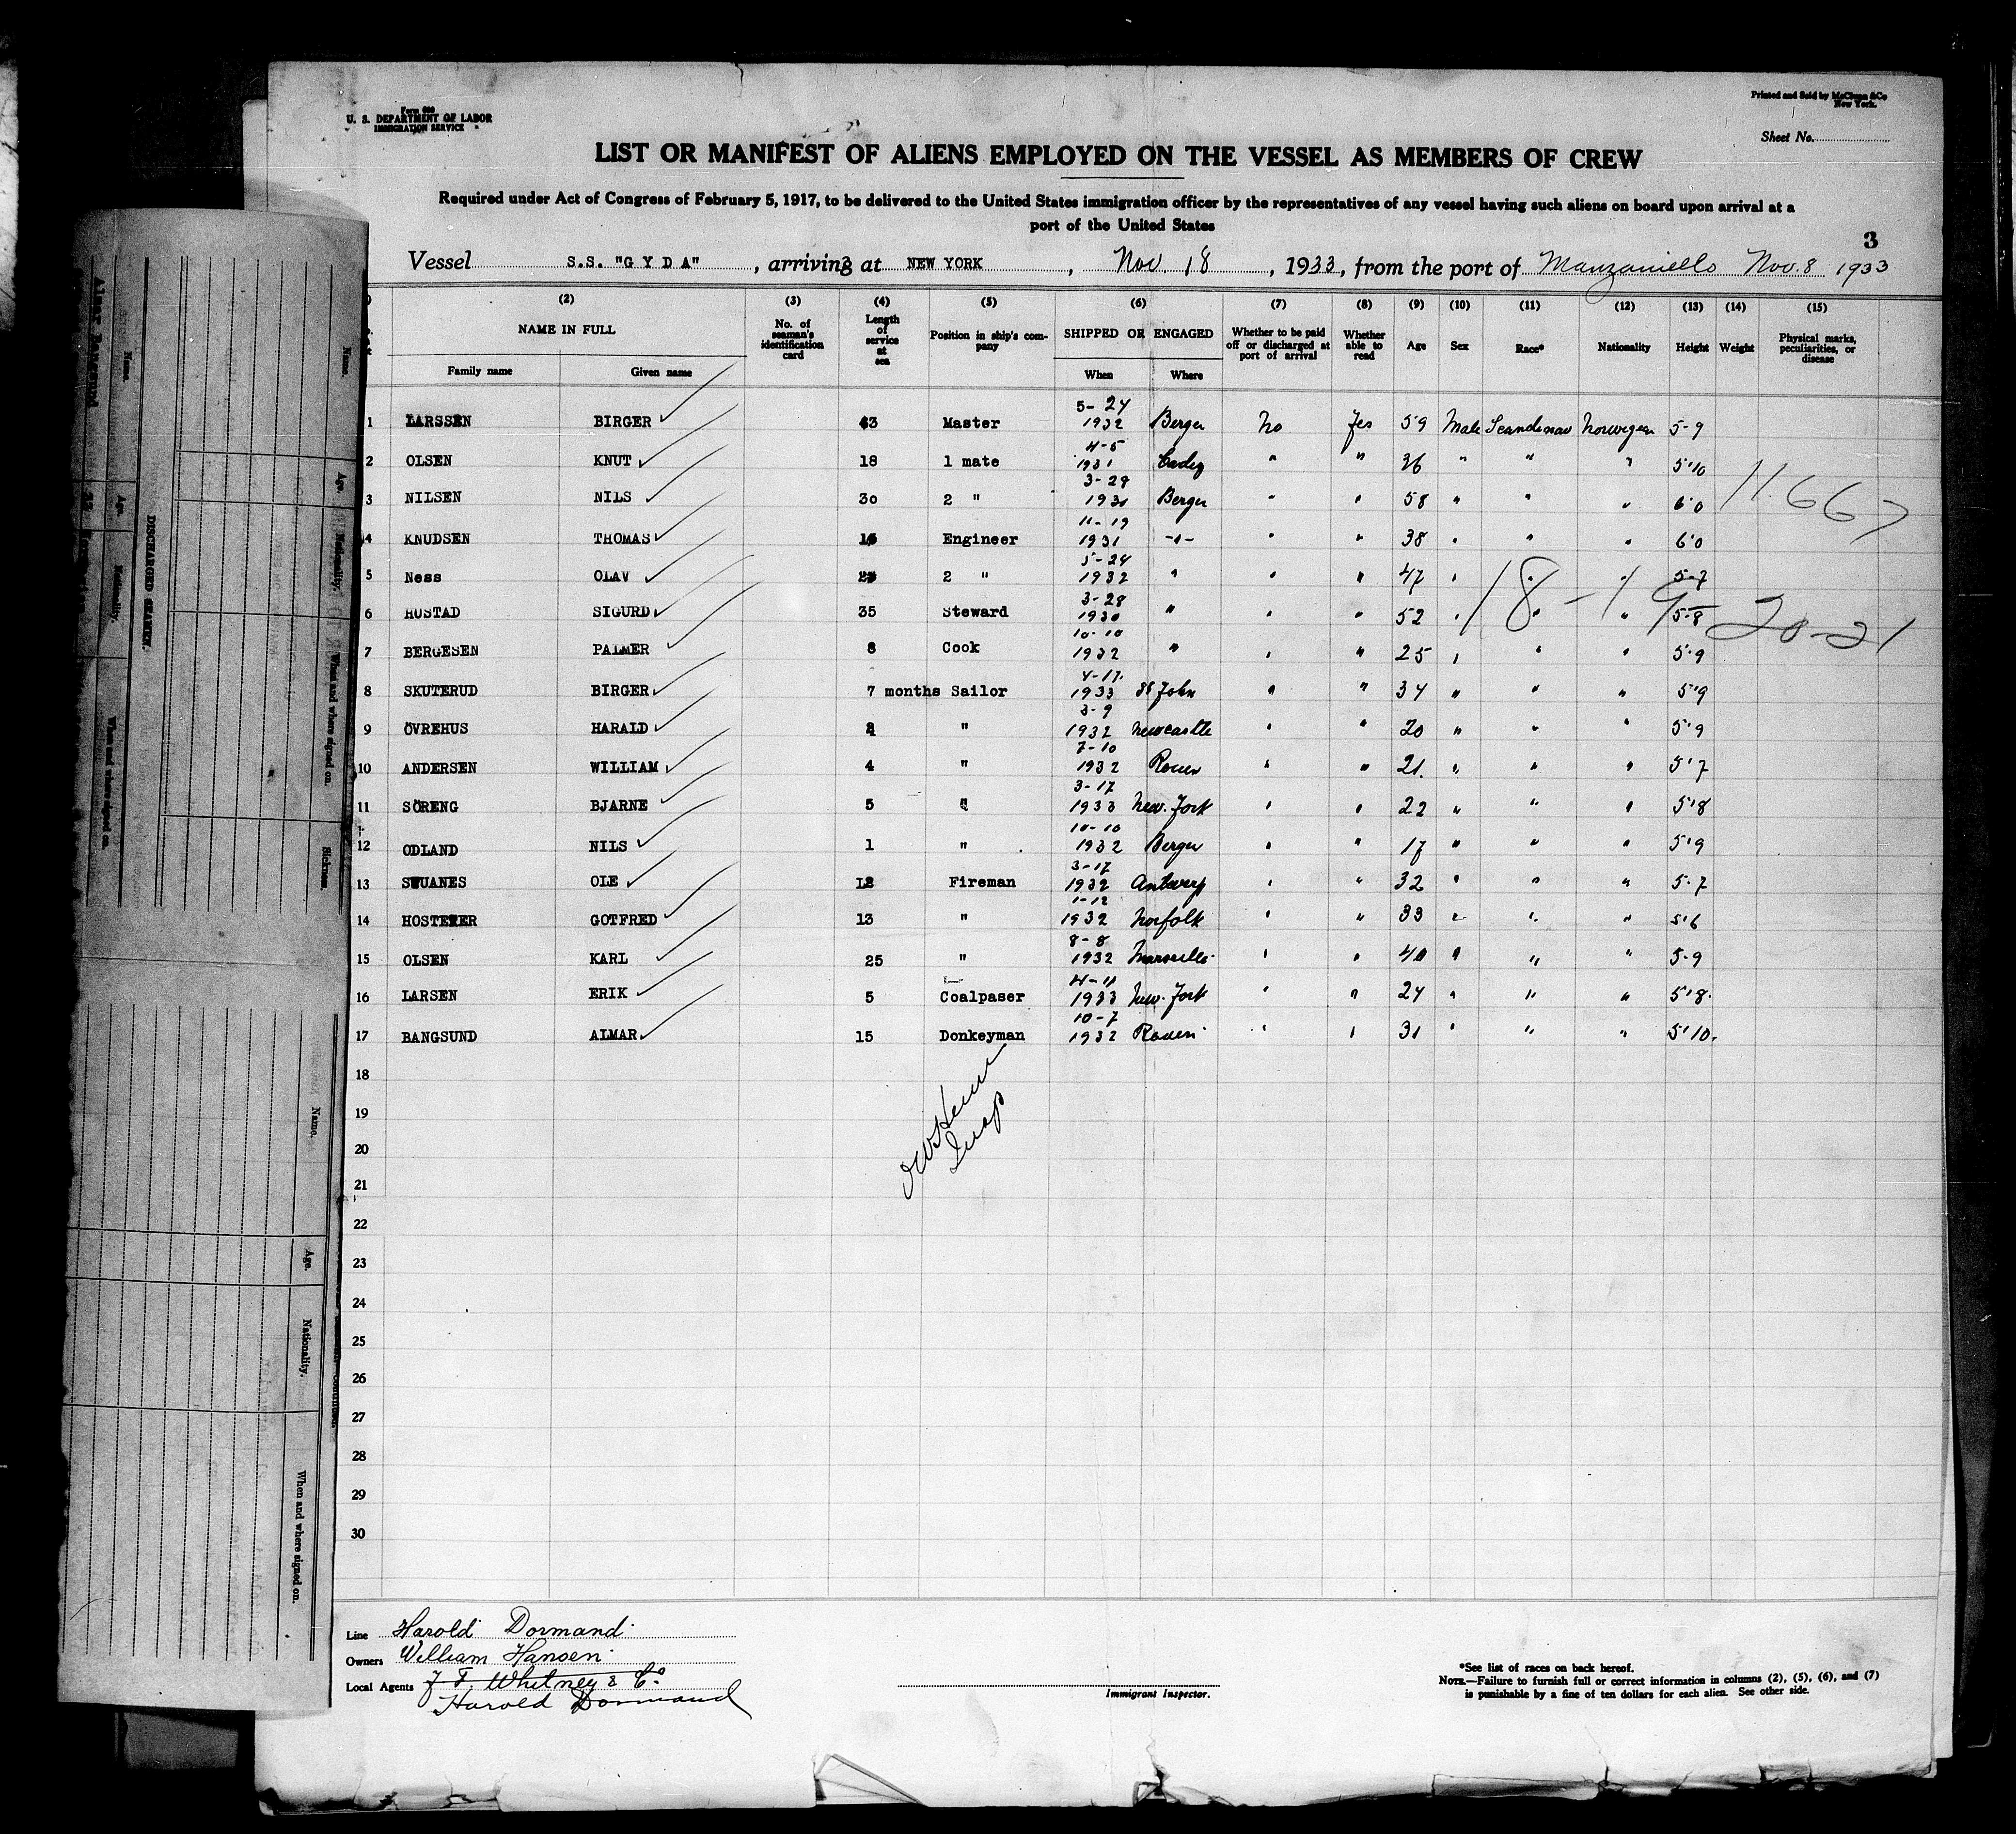 Form 689
U. S. DEPARTMENT OF LABOR
IMMIGRATION SERVICE
Printed and Sold by McClunn & Co
New York.
Sheet No.
LIST OR MANIFEST OF ALIENS EMPLOYED ON THE VESSEL AS MEMBERS OF CREW
Required under Act of Congress of February 5, 1917, to be delivered to the United States immigration officer by the representatives of any vessel having such aliens on board upon arrival at a
port of the United States
3
Vessel S.S. "G Y D A", arriving at NEW YORK, Nov. 18, 1933, from the port of Manzaniello Nov. 8 1933
(2) (3) (4) (5) (6) (7) (8) (9) (10) (11) (12) (13) (14) (15)
NAME IN FULL No. of seaman's identification card Length of service at sea Position in ship's company SHIPPED OR ENGAGED Whether to be paid off or discharged at port of arrival Whether able to read Age Sex Race* Nationality Height Weight Physical marks, peculiarities, or disease
Family name Given name When Where
1 LARSSEN BIRGER 43 Master 5-24 1932 Bergen No Yes 59 Male Scandinav Norwegian 5-9
2 OLSEN KNUT 18 1 mate 4-5 1931 " " 36 " " " 5'10
3 NILSEN NILS 30 2 " 3-28 1930 Bergen " " 58 " " " 6'0
4 KNUDSEN THOMAS Engineer 11-19 1931 -"- " " 38 " " " 6'0
5 Ness OLAV 2 " 5-24 1932 " " " 47 " " " 5-7
6 HUSTAD SIGURD 35 Steward 3-28 1930 " " " 52 " " " 5-8
7 BERGESEN PALMER 8 Cook 10-10 1932 " " " 25 " " " 5'9
8 SKUTERUD BIRGER 7 months Sailor 4-17 1933 St John " " 34 " " " 5'9
9 ÖVREHUS HARALD " 3-9 1932 Newcastle " " 20 " " " 5'9
10 ANDERSEN WILLIAM 4 " 7-10 1932 Rouen " " 21. " " " 5'7
11 SÖRENG BJARNE 5 " 3-17 1933 New. York " " 22 " " " 5'8
12 ODLAND NILS 1 " 10-10 1932 Bergen " " 17 " " " 5'9
13 STUANES OLE 12 Fireman 3-17 1932 Antwerp " " 32 " " " 5-7
14 GOTFRED 13 " 1-12 1932 Norfolk " " 33 " " " 5'6
15 OLSEN KARL 25 " 8-8 1932 Marseille " " 40 " " " 5-9
16 LARSEN ERIK 5 Coalpaser 4-11 1933 New. York " " 24 " " " 5'8.
17 BANGSUND ALMAR 15 Donkeyman 10-7 1932 Rouen " " 31 " " " 5'10.
11.667
18-19
20-21
18
19
20
21
22
23
24
25
26
27
28
29
30
Insp
Line Harold Dormand
Owners William Hansen
Local Agents J. F. Whitney & Co.
Harold Dormand
Immigrant Inspector.
*See list of races on back hereof.
NOTE.—Failure to furnish full or correct information in columns (2), (5), (6), and (7)
is punishable by a fine of ten dollars for each alien. See other side.
DISCHARGED SEAMEN.
Name. Age. Nationality. When and where signed on. Sickness.
Almar Bangsund
Name. Age. Nationality. When and where signed on.
Name. Age. Nationality. When and where signed on.